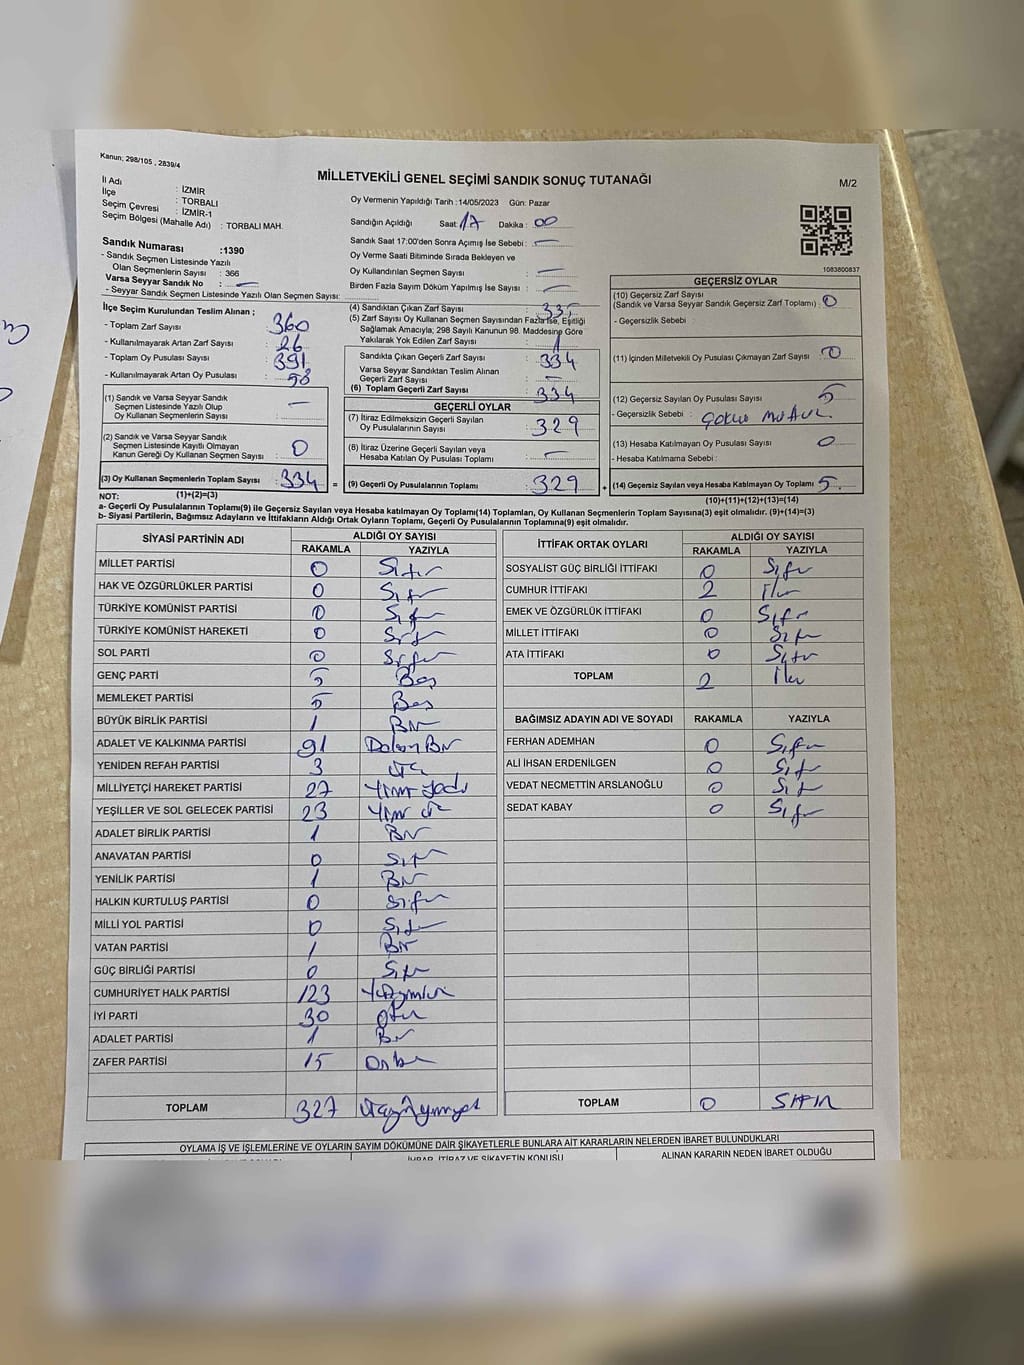 Kanun; 298/105 , 2839/4
MİLLETVEKİLİ GENEL SEÇİMİ SANDIK SONUÇ TUTANAĞI
M/2
İl Adı : İZMİR
İlçe : TORBALI
Seçim Çevresi : İZMİR-1
Seçim Bölgesi (Mahalle Adı) : TORBALI MAH.
Sandık Numarası :1390
- Sandık Seçmen Listesinde Yazılı
Olan Seçmenlerin Sayısı : 366
Varsa Seyyar Sandık No : —
- Seyyar Sandık Seçmen Listesinde Yazılı Olan Seçmen Sayısı:
Oy Vermenin Yapıldığı Tarih :14/05/2023 Gün: Pazar
Sandığın Açıldığı Saat: 17 Dakika : 00
Sandık Saat 17:00'den Sonra Açımış İse Sebebi : —
Oy Verme Saati Bitiminde Sırada Bekleyen ve
Oy Kullandırılan Seçmen Sayısı : —
Birden Fazla Sayım Döküm Yapılmış İse Sayısı : —
1083800837
İlçe Seçim Kurulundan Teslim Alınan ;
- Toplam Zarf Sayısı : 360
- Kullanılmayarak Artan Zarf Sayısı : 26
- Toplam Oy Pusulası Sayısı : 391
- Kullanılmayarak Artan Oy Pusulası :
(1) Sandık ve Seyyar Sandık
Seçmen Listesinde Yazılı Olup
Oy Kullanan Seçmenlerin Sayısı : —
(2) Sandık ve Varsa Seyyar Sandık
Seçmen Listesinde Kayıtlı Olmayan
Kanun Gereği Oy Kullanan Seçmen Sayısı : 0
(3) Oy Kullanan Seçmenlerin Toplam Sayısı : 334 =
(1)+(2)=(3)
(4) Sandıktan Çıkan Zarf Sayısı : 335
(5) Zarf Sayısı Oy Kullanan Seçmen Sayısından Fazla İse, Eşitliği
Sağlamak Amacıyla; 298 Sayılı Kanunun 98. Maddesine Göre
Yakılarak Yok Edilen Zarf Sayısı : 1
Sandıkta Çıkan Geçerli Zarf Sayısı : 334
Varsa Seyyar Sandıktan Teslim Alınan
Geçerli Zarf Sayısı : —
(6) Toplam Geçerli Zarf Sayısı : 334
GEÇERLİ OYLAR
(7) İtiraz Edilmeksizin Geçerli Sayılan
Oy Pusulalarının Sayısı : 329
(8) İtiraz Üzerine Geçerli Sayılan veya
Hesaba Katılan Oy Pusulası Toplamı : —
(9) Geçerli Oy Pusulalarının Toplamı : 329 +
GEÇERSİZ OYLAR
(10) Geçersiz Zarf Sayısı
(Sandık ve Varsa Seyyar Sandık Geçersiz Zarf Toplamı) : 0
- Geçersizlik Sebebi :
(11) İçinden Milletvekili Oy Pusulası Çıkmayan Zarf Sayısı : 0
(12) Geçersiz Sayılan Oy Pusulası Sayısı : 5
- Geçersizlik Sebebi :
(13) Hesaba Katılmayan Oy Pusulası Sayısı : 0
- Hesaba Katılmama Sebebi :
(14) Geçersiz Sayılan veya Hesaba Katılmayan Oy Toplamı : 5
(10)+(11)+(12)+(13)=(14)
NOT:
a- Geçerli Oy Pusulalarının Toplamı(9) ile Geçersiz Sayılan veya Hesaba katılmayan Oy Toplamı(14) Toplamları, Oy Kullanan Seçmenlerin Toplam Sayısına(3) eşit olmalıdır. (9)+(14)=(3)
b- Siyasi Partilerin, Bağımsız Adayların ve İttifakların Aldığı Ortak Oyların Toplamı, Geçerli Oy Pusulalarının Toplamına(9) eşit olmalıdır.
SİYASİ PARTİNİN ADI ALDIĞI OY SAYISI
RAKAMLA YAZIYLA
MİLLET PARTİSİ 0 Sıfır
HAK VE ÖZGÜRLÜKLER PARTİSİ 0 Sıfır
TÜRKİYE KOMÜNİST PARTİSİ 0 Sıfır
TÜRKİYE KOMÜNİST HAREKETİ 0 Sıfır
SOL PARTİ 0 Sıfır
GENÇ PARTİ 5 Beş
MEMLEKET PARTİSİ 5 Beş
BÜYÜK BİRLİK PARTİSİ 1 Bir
ADALET VE KALKINMA PARTİSİ 91 Doksan Bir
YENİDEN REFAH PARTİSİ 3 Üç
MİLLİYETÇİ HAREKET PARTİSİ 27 Yirmi Yedi
YEŞİLLER VE SOL GELECEK PARTİSİ 23 Yirmi Üç
ADALET BİRLİK PARTİSİ 1 Bir
ANAVATAN PARTİSİ 0 Sıfır
YENİLİK PARTİSİ 1 Bir
HALKIN KURTULUŞ PARTİSİ 0 Sıfır
MİLLİ YOL PARTİSİ 0 Sıfır
VATAN PARTİSİ 1 Bir
GÜÇ BİRLİĞİ PARTİSİ 0 Sıfır
CUMHURİYET HALK PARTİSİ 123
İYİ PARTİ 30 Otuz
ADALET PARTİSİ 1 Bir
ZAFER PARTİSİ 15 Onbeş
TOPLAM 327
İTTİFAK ORTAK OYLARI ALDIĞI OY SAYISI
RAKAMLA YAZIYLA
SOSYALİST GÜÇ BİRLİĞİ İTTİFAKI 0 Sıfır
CUMHUR İTTİFAKI 2 İki
EMEK VE ÖZGÜRLÜK İTTİFAKI 0 Sıfır
MİLLET İTTİFAKI 0 Sıfır
ATA İTTİFAKI 0 Sıfır
TOPLAM 2 İki
BAĞIMSIZ ADAYIN ADI VE SOYADI RAKAMLA YAZIYLA
FERHAN ADEMHAN 0 Sıfır
ALİ İHSAN ERDENİLGEN 0 Sıfır
VEDAT NECMETTİN ARSLANOĞLU 0 Sıfır
SEDAT KABAY 0 Sıfır
TOPLAM 0 SIFIR
OYLAMA İŞ VE İŞLEMLERİNE VE OYLARIN SAYIM DÖKÜMÜNE DAİR ŞİKAYETLERLE BUNLARA AİT KARARLARIN NELERDEN İBARET BULUNDUKLARI
İHBAR, İTİRAZ VE ŞİKAYETİN KONUSU ALINAN KARARIN NEDEN İBARET OLDUĞU